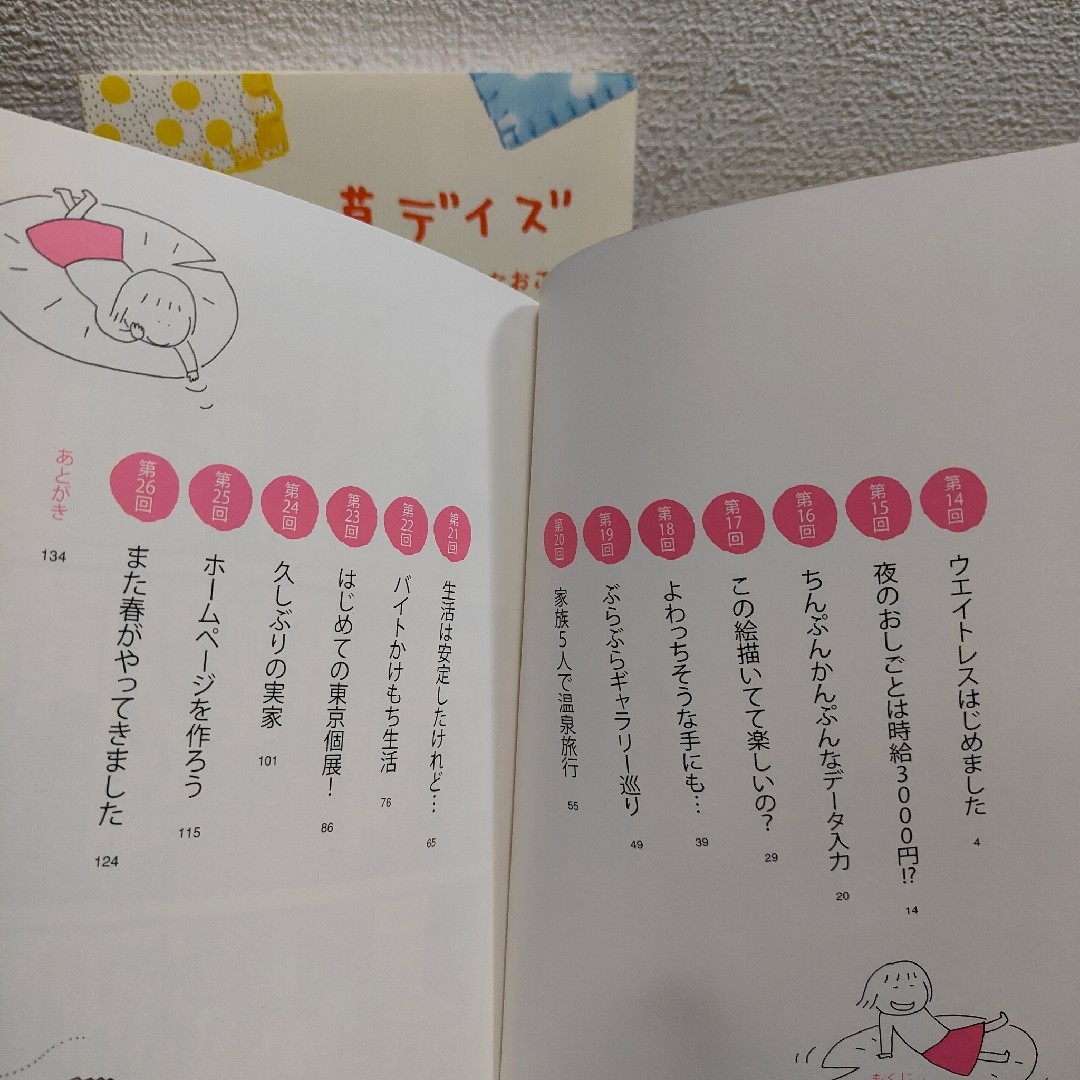 草デイズ
なおこ
もくじ
第14回
ウエイトレスはじめました
4
第15回
夜のおしごとは時給3000円!?
14
第16回
ちんぷんかんぷんなデータ入力
20
第17回
この絵描いてて楽しいの?
29
第18回
よわっちそうな手にも…
39
第19回
ぶらぶらギャラリー巡り
49
第20回
家族5人で温泉旅行
55
第21回
生活は安定したけれど…
65
第22回
バイトかけもち生活
76
第23回
はじめての東京個展!
86
第24回
久しぶりの実家
101
第25回
ホームページを作ろう
115
第26回
また春がやってきました
124
あとがき
134